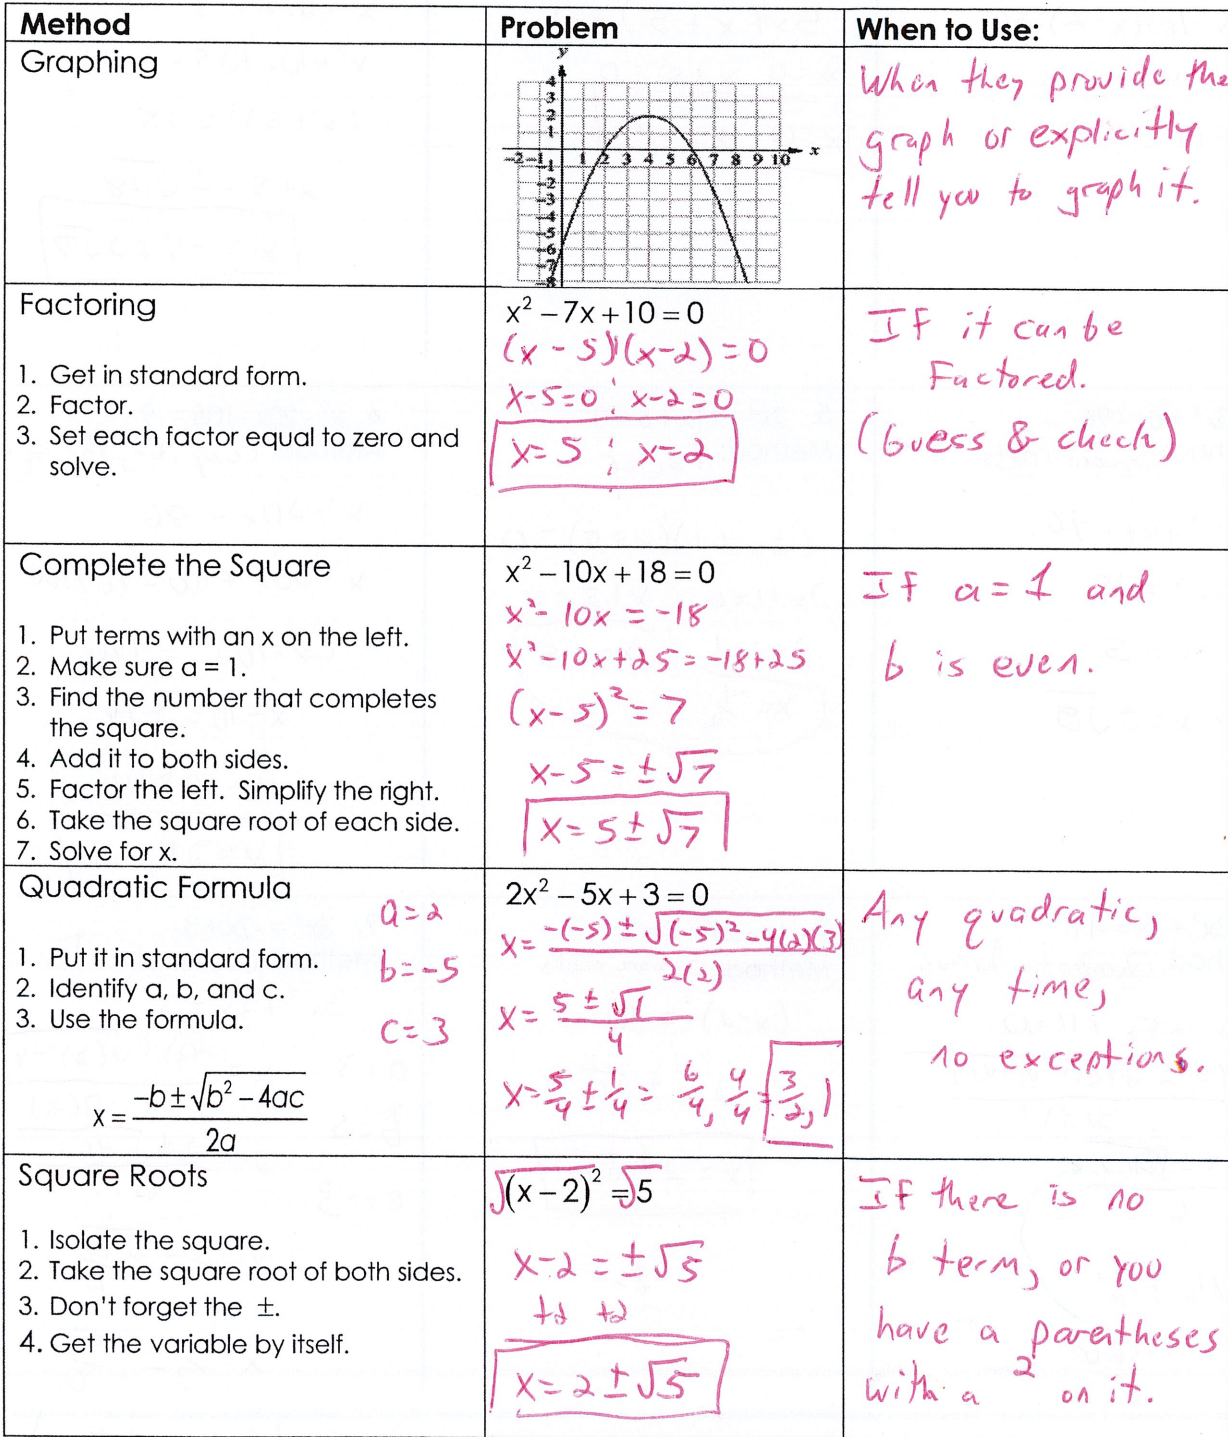 Method
Problem
When to Use:
Graphing
y
4
3
2
1
-2 -1 1 2 3 4 5 6 7 8 9 10 x
-1
-2
-3
-4
-5
-6
-7
-8
When they provide the
graph or explicitly
tell you to graph it.
Factoring
1. Get in standard form.
2. Factor.
3. Set each factor equal to zero and
solve.
x² – 7x + 10 = 0
(x - 5)(x-2) = 0
x-5=0 ; x-2=0
x= 5 ; x=2
If it can be
Factored.
(Guess & check)
Complete the Square
1. Put terms with an x on the left.
2. Make sure a = 1.
3. Find the number that completes
the square.
4. Add it to both sides.
5. Factor the left. Simplify the right.
6. Take the square root of each side.
7. Solve for x.
x² – 10x + 18 = 0
x² - 10x = -18
x² -10x+25 = -18+25
(x-5)² = 7
x-5 = ±√7
x= 5 ± √7
If a = 1 and
b is even.
Quadratic Formula
a=2
1. Put it in standard form.
b=-5
2. Identify a, b, and c.
3. Use the formula.
c=3
x = (-b ± √(b² – 4ac)) / 2a
2x² – 5x + 3 = 0
x= (-(-5) ± √((-5)² -4(2)(3))) / 2(2)
x= (5 ± √1) / 4
x= 5/4 ± 1/4 = 6/4, 4/4 = 3/2, 1
Any quadratic,
any time,
no exceptions.
Square Roots
1. Isolate the square.
2. Take the square root of both sides.
3. Don't forget the ±.
4. Get the variable by itself.
√(x – 2)² = √5
x-2 = ±√5
+2 +2
x= 2 ± √5
If there is no
b term, or you
have a parentheses
with a ² on it.